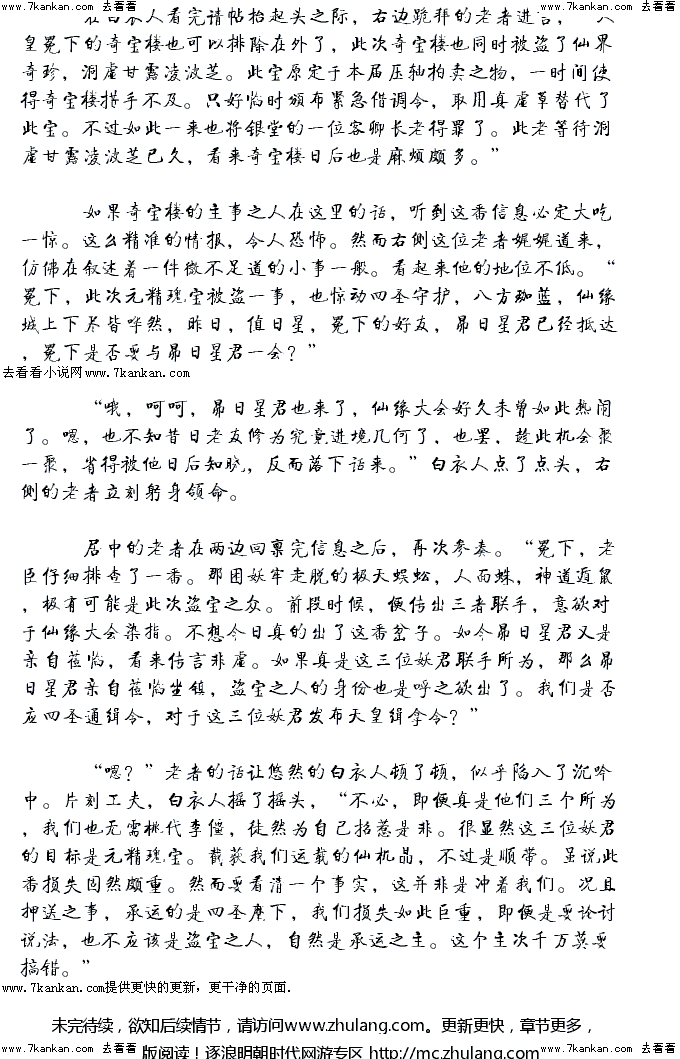 www.7kankan.com 去看看 www.7kankan.com 去看看 www.7kankan.com 去看看
在白衣人看完请帖抬起头之际，右边跪拜的老者进言，“人
皇冕下的奇宝楼也可以排除在外了，此次奇宝楼也同时被盗了仙界
奇珍，洞虚甘露凌波芝。此宝原定于本届压轴拍卖之物，一时间使
得奇宝楼措手不及。只好临时颁布紧急借调令，取用真虚草替代了
此宝。不过如此一来也将银堂的一位客卿长老得罪了。此老等待洞
虚甘露凌波芝已久，看来奇宝楼日后也是麻烦颇多。”
如果奇宝楼的主事之人在这里的话，听到这番信息必定大吃
一惊。这么精准的情报，令人恐怖。然而右侧这位老者娓娓道来，
仿佛在叙述着一件微不足道的小事一般。看起来他的地位不低。“
冕下，此次元精瑰宝被盗一事，也惊动四圣守护，八方珈蓝，仙缘
城上下尽皆哗然，昨日，值日星，冕下的好友，昴日星君已经抵达
，冕下是否要与昴日星君一会？”
去看看小说网www.7kankan.com
“哦，呵呵，昴日星君也来了，仙缘大会好久未曾如此热闹
了。嗯，也不知昔日老友修为究竟进境几何了，也罢，趁此机会聚
一聚，省得被他日后知晓，反而落下话来。”白衣人点了点头，右
侧的老者立刻躬身领命。
居中的老者在两边回禀完信息之后，再次参奏。“冕下，老
臣仔细排查了一番。那困妖牢走脱的极天蜈蚣，人面蛛，神道遁鼠
，极有可能是此次盗宝之众。前段时候，便传出三者联手，意欲对
于仙缘大会染指。不想今日真的出了这番岔子。如今昴日星君又是
亲自莅临，看来传言非虚。如果真是这三位妖君联手所为，那么昴
日星君亲自莅临坐镇，盗宝之人的身份也是呼之欲出了。我们是否
应四圣通缉令，对于这三位妖君发布天皇缉拿令？”
“嗯？”老者的话让悠然的白衣人顿了顿，似乎陷入了沉吟
中。片刻工夫，白衣人摇了摇头，“不必，即便真是他们三个所为
，我们也无需桃代李僵，徒然为自己招惹是非。很显然这三位妖君
的目标是元精瑰宝。截获我们运载的仙机晶，不过是顺带。虽说此
番损失固然颇重。然而要看清一个事实，这并非是冲着我们。况且
押送之事，承运的是四圣麾下，我们损失如此巨重，即便是要讨讨
说法，也不应该是盗宝之人，自然是承运之主。这个主次千万莫要
搞错。”
www.7kankan.com提供更快的更新，更干净的页面.
未完待续，欲知后续情节，请访问www.zhulang.com。更新更快，章节更多，
www.7kankan.com 去看看 www.7kankan.com 去看看 www.7kankan.com 去看看
版阅读！逐浪明朝时代网游专区 http://mc.zhulang.com/